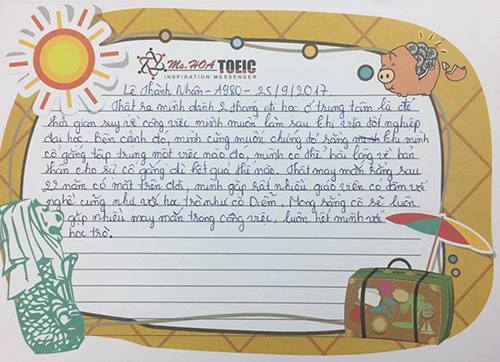 Ms. HOA TOEIC
INSPIRATION MESSENGER
Lê Thành Nhân - 1980 - 25/9/2017
Thật ra mình dành 2 tháng đi học ở trung tâm là để
thời gian suy về công việc mình muốn làm sau khi vừa tốt nghiệp
đại học. Bên cạnh đó, mình cũng muốn chứng tỏ rằng khi mình
cố gắng tập trung một việc nào đó, mình có thể hài lòng về bản
thân cho sự cố gắng dù kết quả thế nào. Thật may mắn rằng sau
22 năm có mặt trên đời, mình gặp rất nhiều giáo viên có tâm với
nghề cũng như với học trò như cô Diễm. Mong rằng cô sẽ luôn
gặp nhiều may mắn trong công việc, luôn hết mình với
học trò.